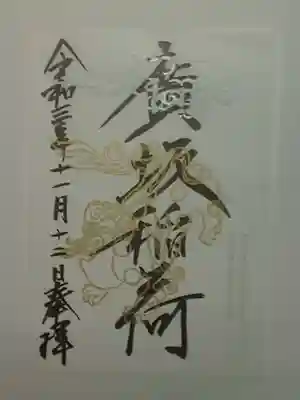 廣坂稲荷
令和三年十一月十二日奉拝